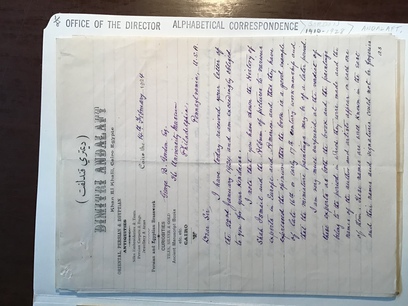 (ديمتري قندلفت)
DIMITRI ANDALAFT
Khan El Khalil, Cairo Egypt
ORIENTAL PERSIAN & EGYPTIAN
ANTIQUITIES
Persian and Egyptian Brasswork
CURIOSITIES
Ancient Manuscript Books
etc. etc.
CAIRO
Cairo the 14th February 1924
George B. Gordon Esq.
The University Museum
Philadelphia
Pennsylvania, U.S.A.
Dear Sir,
I have today received your letter of
the 22nd January 1924 and am exceedingly obliged
to you for your kindness.
I note that you have shown the History of
Shah Ismail and the Album of pictures to various
experts in Europe and America and that they have
expressed the opinion that the book is a good example
of late 16th or early 17th Century workmanship and
that the miniature paintings may be of a later period.
I am very much surprised at the verdict of
these experts as both the book and the paintings
belong to the period in which they were made and the
names of the author and artists appear on each one
of them. These names are well known in the East
and their names and signatures could not be forgeries
as
OFFICE OF THE DIRECTOR ALPHABETICAL CORRESPONDENCE